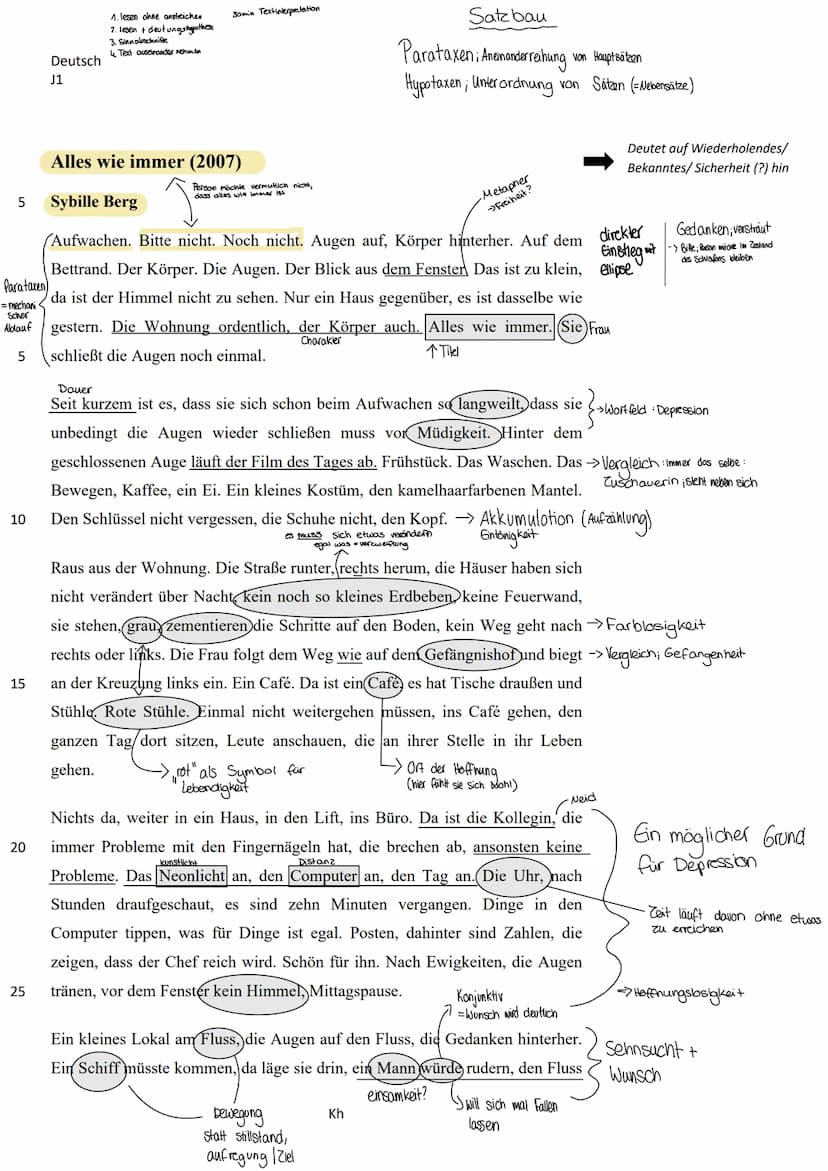 1. lesen ohne anstreichen
2. lesen + deutungshypothese
3. Sinnabschnitte
4. Text auseinander nehmen
Textinterpretation
Deutsch
J1
Satzbau
Parataxen; Aneinanderreihung von Hauptsätzen
Hypotaxen; Unterordnung von Sätzen (=Nebensätze)
Alles wie immer (2007)
Deutet auf Wiederholendes/
Bekanntes/ Sicherheit (?) hin
Person möchte vermutlich nicht,
dass alles wie immer ist
5 Sybille Berg
Metapher
→ Freiheit?
Aufwachen. Bitte nicht. Noch nicht. Augen auf, Körper hinterher. Auf dem
Bettrand. Der Körper. Die Augen. Der Blick aus dem Fenster. Das ist zu klein,
da ist der Himmel nicht zu sehen. Nur ein Haus gegenüber, es ist dasselbe wie
gestern. Die Wohnung ordentlich, der Körper auch. Alles wie immer. Sie Frau
Charakter
↑ Titel
5 schließt die Augen noch einmal.
Parataxen
= mechani
scher
Ablauf
direkter
Einstieg mit
ellipse
Gedanken; verträumt
-> Bitte; Person möchte im Zustand
des Schlafens bleiben
Dauer
Seit kurzem ist es, dass sie sich schon beim Aufwachen so langweilt, dass sie
unbedingt die Augen wieder schließen muss vor Müdigkeit. Hinter dem
geschlossenen Auge läuft der Film des Tages ab. Frühstück. Das Waschen. Das
Bewegen, Kaffee, ein Ei. Ein kleines Kostüm, den kamelhaarfarbenen Mantel.
10 Den Schlüssel nicht vergessen, die Schuhe nicht, den Kopf. → Akkumulotion (Aufzählung)
Eintönigkeit
→ Wortfeld: Depression
→ Vergleich: immer das selbe:
Zuschauerin; steht neben sich
es muss sich etwas verändern
egal was = verzweiflung
Raus aus der Wohnung. Die Straße runter, rechts herum, die Häuser haben sich
nicht verändert über Nacht, kein noch so kleines Erdbeben, keine Feuerwand,
sie stehen, grau, zementieren die Schritte auf den Boden, kein Weg geht nach → Farblosigkeit
rechts oder links. Die Frau folgt dem Weg wie auf dem Gefängnishof und biegt -> Vergleich; Gefangenheit
15 an der Kreuzung links ein. Ein Café. Da ist ein Café, es hat Tische draußen und
Stühle. Rote Stühle. Einmal nicht weitergehen müssen, ins Café gehen, den
ganzen Tag dort sitzen, Leute anschauen, die an ihrer Stelle in ihr Leben
gehen.
"rot" als Symbol für
Lebendigkeit
Ort der Hoffnung
(hier fühlt sie sich wohl)
Neid
Nichts da, weiter in ein Haus, in den Lift, ins Büro. Da ist die Kollegin, die
20 immer Probleme mit den Fingernägeln hat, die brechen ab, ansonsten keine
künstlich
Distanz
Probleme. Das Neonlicht an, den Computer an, den Tag an. Die Uhr, nach
Stunden draufgeschaut, es sind zehn Minuten vergangen. Dinge in den
Computer tippen, was für Dinge ist egal. Posten, dahinter sind Zahlen, die
zeigen, dass der Chef reich wird. Schön für ihn. Nach Ewigkeiten, die Augen
25 tränen, vor dem Fenster kein Himmel, Mittagspause.
Ein möglicher Grund
für Depression
Zeit läuft davon ohne etwas
zu erreichen
→ Hoffnungslosigkeit
Konjunktiv
= Wunsch wird deutlich
Ein kleines Lokal am Fluss, die Augen auf den Fluss, die Gedanken hinterher.
Ein Schiff müsste kommen, da läge sie drin, ein Mann würde rudern, den Fluss
Sehnsucht +
Wunsch
einsamkeit?
will sich mal Fallen
lassen
Bewegung
statt stillstand,
aufregung / Ziel
Kh